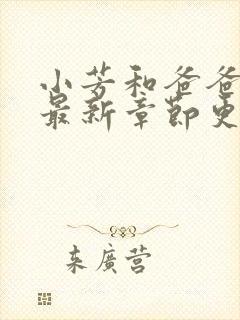 小芳和爸爸
最新章节更
来廣营